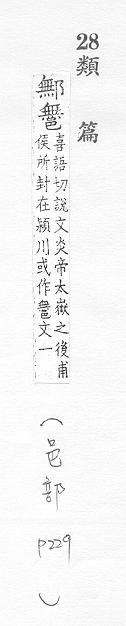 28 類篇
鄦𨞀喜語切說文炎帝太嶽之後甫
侯所封在潁川或作𨞀文一
(邑部 P229)